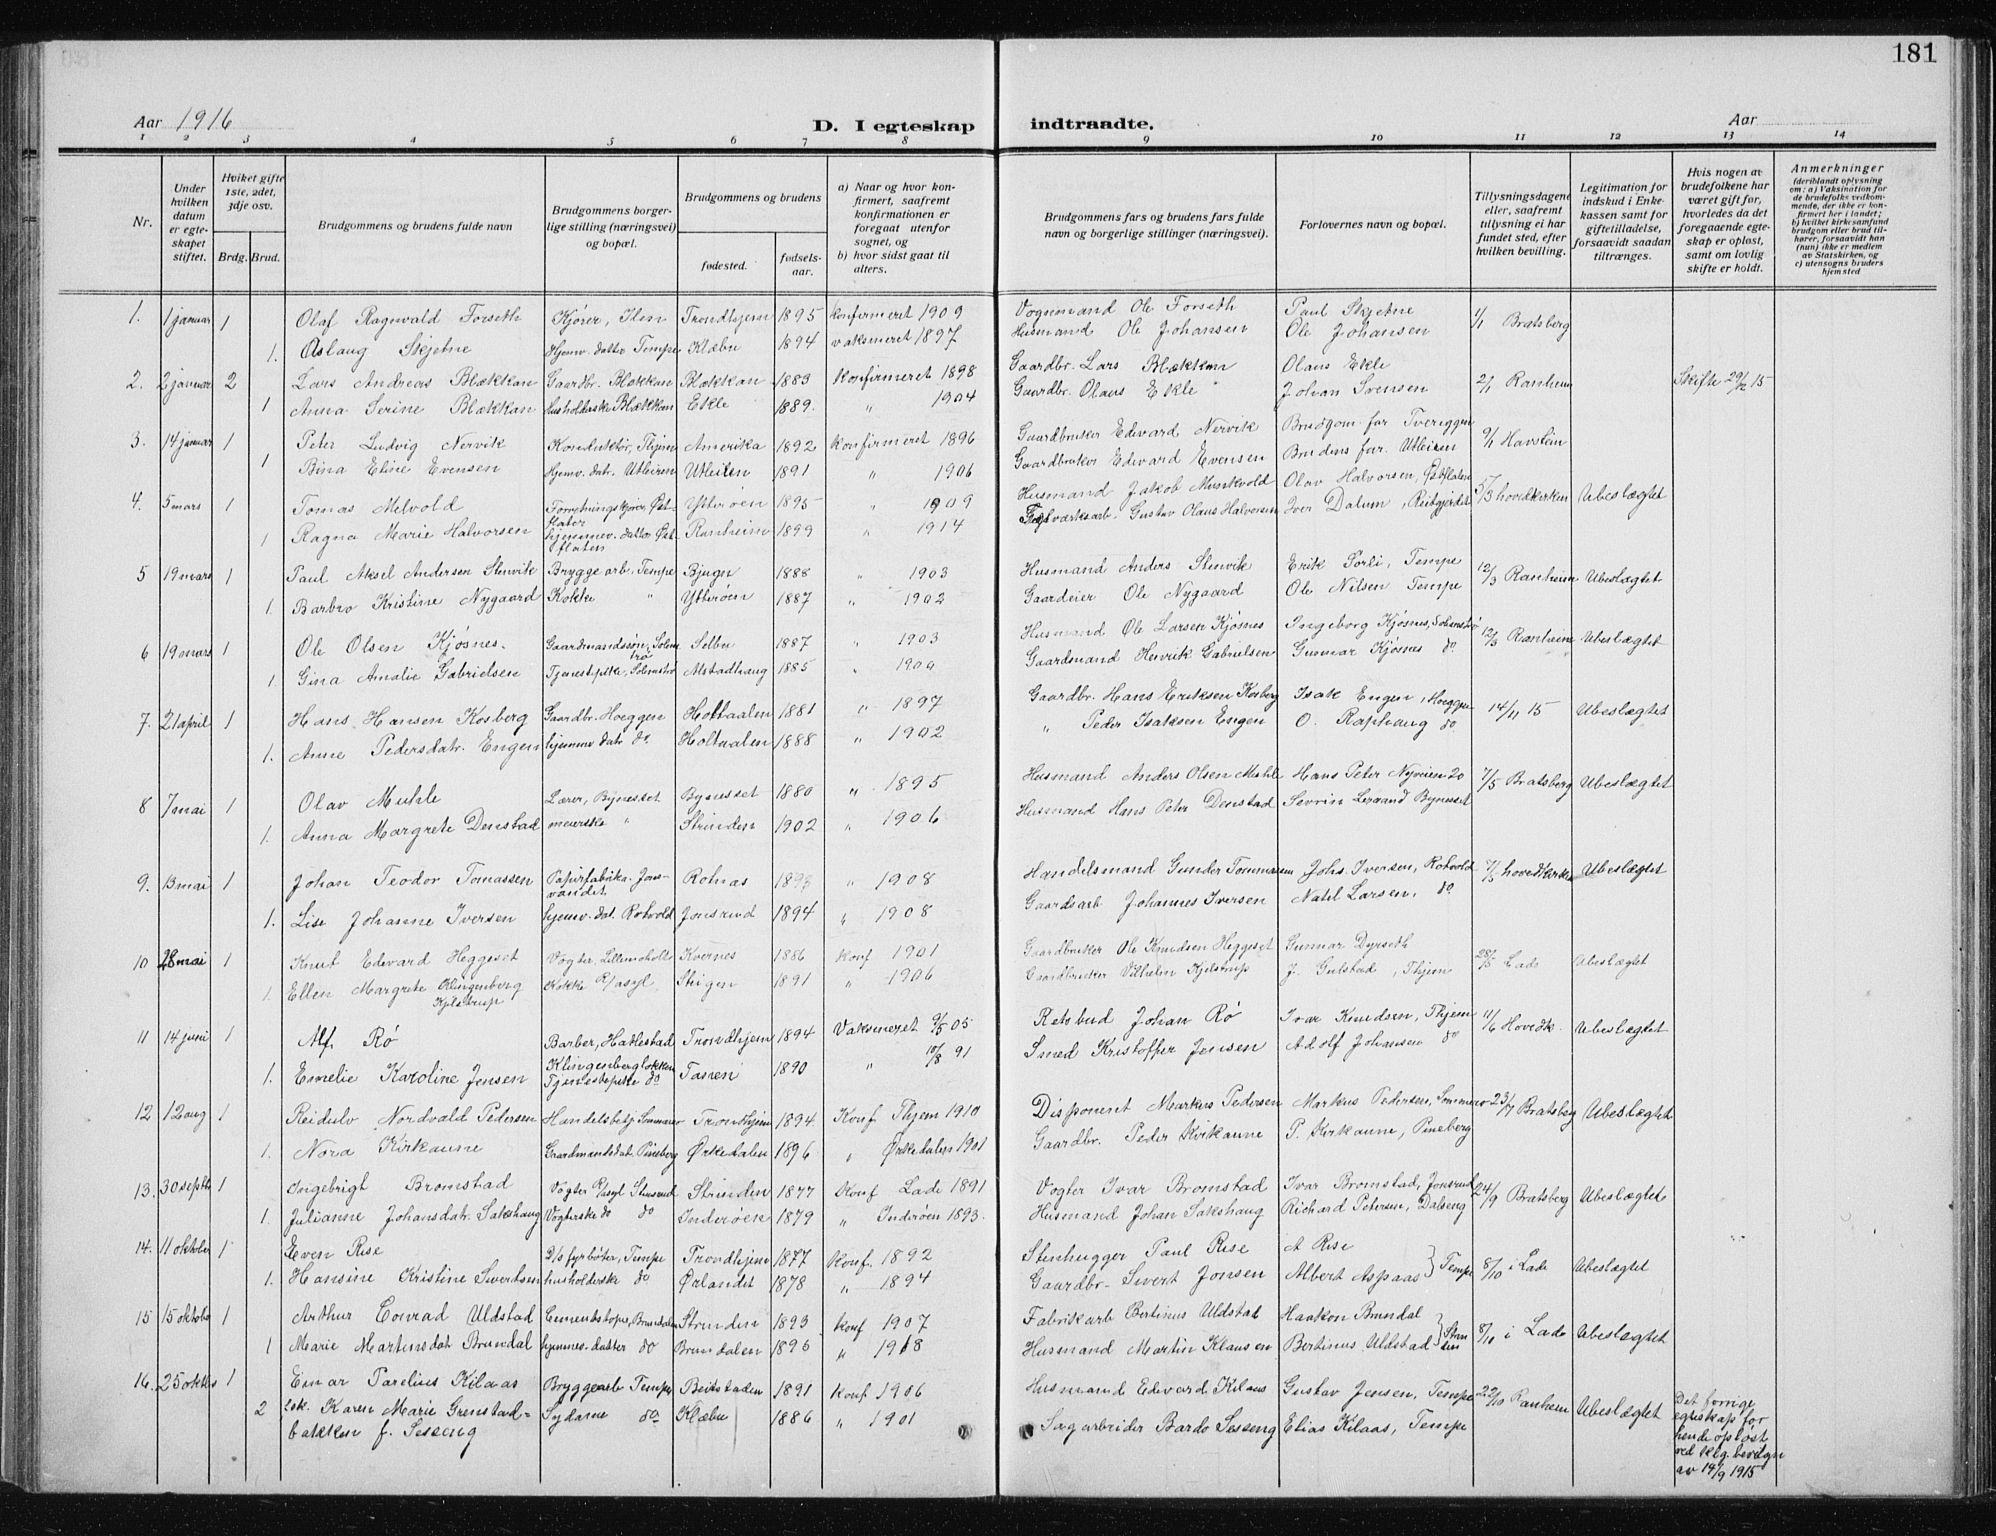 181
Aar 1916
D. I egteskap indtraadte.
Aar
1 2 3 4 5 6 7 8 9 10 11 12 13 14
Nr.
Under hvilken datum er egteskapet stiftet.
Hviket gifte 1ste, 2det, 3dje osv.
Brdg. Brud.
Brudgommens og brudens fulde navn
Brudgommens borgerlige stilling (næringsvei) og bopæl.
Brudgommens og brudens
fødested.
fødselsaar.
a) Naar og hvor konfirmert, saafremt konfirmationen er foregaat utenfor sognet, og
b) hvor sidst gaat til alters.
Brudgommens fars og brudens fars fulde navn og borgerlige stillinger (næringsvei).
Forlovernes navn og bopæl.
Tillysningsdagene eller, saafremt tillysning ei har fundet sted, efter hvilken bevilling.
Legitimation for indskud i Enkekassen samt for giftetilladelse, forsaavidt saadan tiltrænges.
Hvis nogen av brudefolkene har været gift før, hvorledes da det foregaaende egteskap er opløst, samt om lovlig skifte er holdt.
Anmerkninger (deriblandt oplysning om: a) Vaksination for de brudefolks vedkommende, der ikke er konfirmert her i landet; b) hvilket kirkesamfund brudgom eller brud tilhører, forsaavidt han (hun) ikke er medlem av Statskirken, og c) utensogns bruders hjemsted
1. 1 januar 1 Olaf Ragnvald Forseth Kjører, Ilen Trondhjem 1895 konfirmeret 1909 Vognmand Ole Forseth Paul Skjetne 1/1 Bratsberg
1. Aslaug Skjetne Hjemv. datter Tempe Klæbu 1894 vaksineret 1897 Husmand Ole Johansen Ole Johansen
2. 2 januar 2 Lars Andreas Blækkan Gaardbr. Blækkan Blækkan 1883 konfirmeret 1898 Gaardbr. Lars Blækkan Olaus Ekle 2/1 Ranheim Skifte 29/12 15
1 Anna Serine Blækkan Husholderske Blækkan Ekle 1889. " 1904 Gaardbr. Olaus Ekle Johan Svensen
3. 14 januar 1 Peter Ludvig Nervik Konduktør, Thjem Amerika 1892 konfirmeret 1896 Gaardbruker Edvard Nervik Brudgom. far 9/1 Havstein
1 Bina Eline Evensen Hjemv. dat. Utleiren Utleiren 1891 " 1906 Gaardbruker Edvard Evensen Brudens far. Utleiren
4. 5 mars 1 Tomas Melvold Forretningskjører, Østflaten Ytterøen 1895 " 1909 Husmand Jakob Musikvold Olav Halvorsen, Østflaten 5/3 hovedkirken Ubeslægtet
1 Ragna Marie Halvorsen hjemmev. datter Østflaten Ranheim 1899 " 1914 Gustav Olaus Halvorsen Iver Dalum, Reitgjærdet
5 19 mars 1 Paul Aksel Andersen Stenvik Bryggearb. Tempe Bjugn 1888 " 1903 Husmand Anders Stenvik Erik Sorli, Tempe 12/3 Ranheim Ubeslægtet
1. Barbro Kristine Nygaard Kokke " Ytterøen 1887 " 1902 Gaardeier Ole Nygaard Ole Nilsen Tempe
6 19 mars 1 Ole Olsen Kjøsnes. Gaardmandssøn, Solemtrø Selbu 1887 " 1903 Husmand Ole Larsen Kjøsnes Ingeborg Kjøsnes, Solemtrø 12/3 Ranheim Ubeslægtet
1. Gina Amalie Gabrielsen Tjenestepike, Solemtrø Alstadhaug 1885 " 1900 Gaardmand Henrik Gabrielsen Gunnar Kjøsnes do
7. 21 april 1 Hans Hansen Kosberg Gaardbr. Hoeggen Holtaalen 1881 " 1897 Gaardbr. Hans Eriksen Kosberg Isak Engen, Hoeggen 14/11 15 Ubeslægtet
1. Anne Pedersdatr. Engen hjemmv datr do Holtaalen 1888 " 1902 " Peder Isaksen Engen O. Raphaug do
8 7 mai 1 Olav Muhle Lærer, Bynesset Bynesset 1880 " 1895 Husmand Anders Olsen Muhle Hans Peter Nyveien 20 7/5 Bratsberg Ubeslægtet
1. Anna Margrete Denstad meierske " Strinden 1902 " 1906 Husmand Hans Peter Denstad Sevrin Leraand Bynesset
9. 13 mai 1 Johan Teodor Tomassen Papirfabrika. Jonsvandet Rotnas 1893 " 1908 Handelsmand Gunder Tommassen Johs. Iversen, Rotvold 7/5 hovedkirken Ubeslægtet
1. Lise Johanne Iversen hjemv. dat. Rotvold Jonsrud 1894 " 1908 Gaardsarb Johannes Iversen Natel Larsen, do
10 28 mai 1 Knut Edevard Heggeset Vogter, Lillemoholt Kvernes 1886 konf 1901 Gaardbruker Ole Knudsen Heggeset Gunnar Dyrseth 28/5 Lade Ubeslægtet
1. Ellen Margrete Klingenberg Kjelstrup Kokke R/asyl. Steigen 1891 " 1906 Gaardbruker Vilhelm Kjelstrup J. Gulstad, Thjem
11 14 juni 1 Alf Rø Barber, Hatlestad Trondhjem 1894 Vaksineret 9/5 05 Retsbud Johan Rø Ivar Knudsen, Thjem 11/6 Hovedk. Ubeslægtet
1. Emelie Karoline Jensen Klingenbergløkken Tjenestepike do Tanen 1890 " 10/8 91 Smed Kristoffer Jensen Adolf Johansen do
12 12 aug 1 Reidulv Nordvald Pedersen Handelsbetj. Sommero Trondhjem 1894 Konf Thjem 1910 Disponent Markus Pedersen Markus Pedersen, Sommero 23/7 Bratsberg Ubeslægtet
1. Nora Kirkaune Gaardmandsdat. Pineberg Ørkedalen 1896 " Ørkedalen 1901 Gaardbr. Peder Kirkaune P. Kirkaune, Pineberg
13. 30 septbr 1 Ingebrigt Bromstad Vogter R/asyl Stusrud Strinden 1877 Konf Lade 1891 Vogter Ivar Bromstad Ivar Bromstad, Jonsrud 24/9 Bratsberg Ubeslægtet
1. Julianne Johansdatr. Sakshaug Vogterske do do Inderøen 1879 " Inderøen 1893. Husmand Johan Sakshaug Richard Petersen, Dalseng
14. 11 oktober 1 Even Rise D/s fyrbøter, Tempe Trondhjem 1877 konf. 1892 Stenhugger Paul Rise A Rise 8/10 i Lade Ubeslægtet
1. Hansine Kristine Sivertsen husholderske do Ørlandet 1878 " 1894 Gaardbr. Sivert Jonsen Albert Aspaas } Tempe
15 15 oktober 1 Arthur Conrad Uldstad Cementstøper, Brundalen Strinden 1893 konf 1907 Fabrikarb Bertinus Uldstad Haakon Brundal 8/10 i Lade Ubeslægtet
1 Marie Martinsdat Brundal hjemmev. datter do Brundalen 1895 " 1918 Husmand Martin Klausen Bertinus Uldstad } Strinden
16. 25 oktbr 1 Einar Parelius Kilaas Bryggearb Tempe Beitstaden 1891 konf 1906 Husmand Edevard Kilaas Gustav Jensen, Tempe 22/10 Ranheim Ubeslægtet Det forrige egteskap for hende opløst ved klg. bevilgn av 14/9 1915
2 Karen Marie Grenstadbakken f. Sesseng Sydame do Klæbu 1886 " 1901 Sagarbeider Bardo Sesseng Elias Kilaas, Tempe